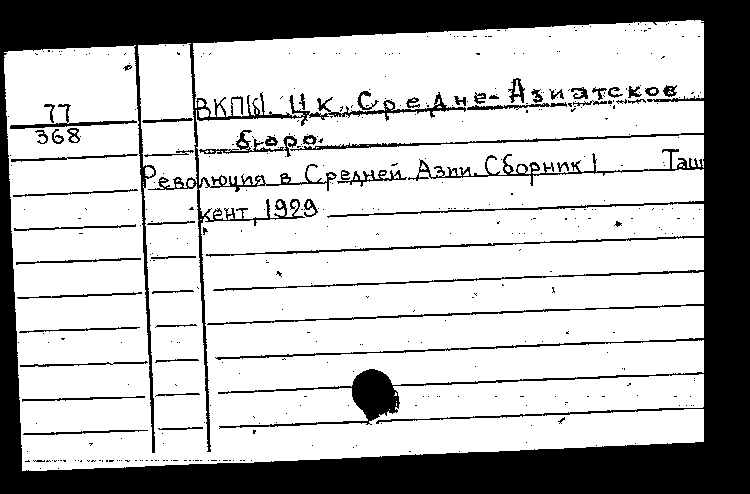 77
368
ВКП(б). ЦК. Средне-Азиатское
бюро.
Революция в Средней Азии. Сборник 1. Таш
кент, 1929